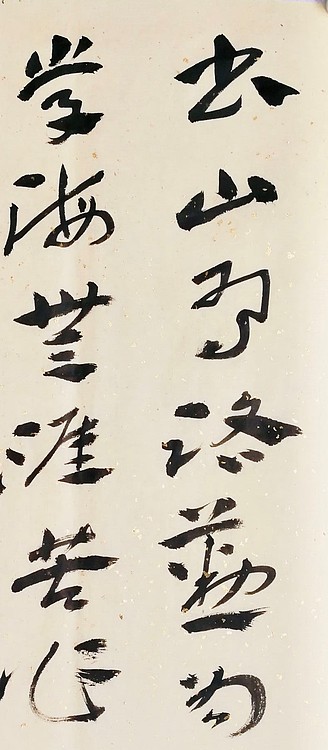 书山有路勤为
学海无涯苦作